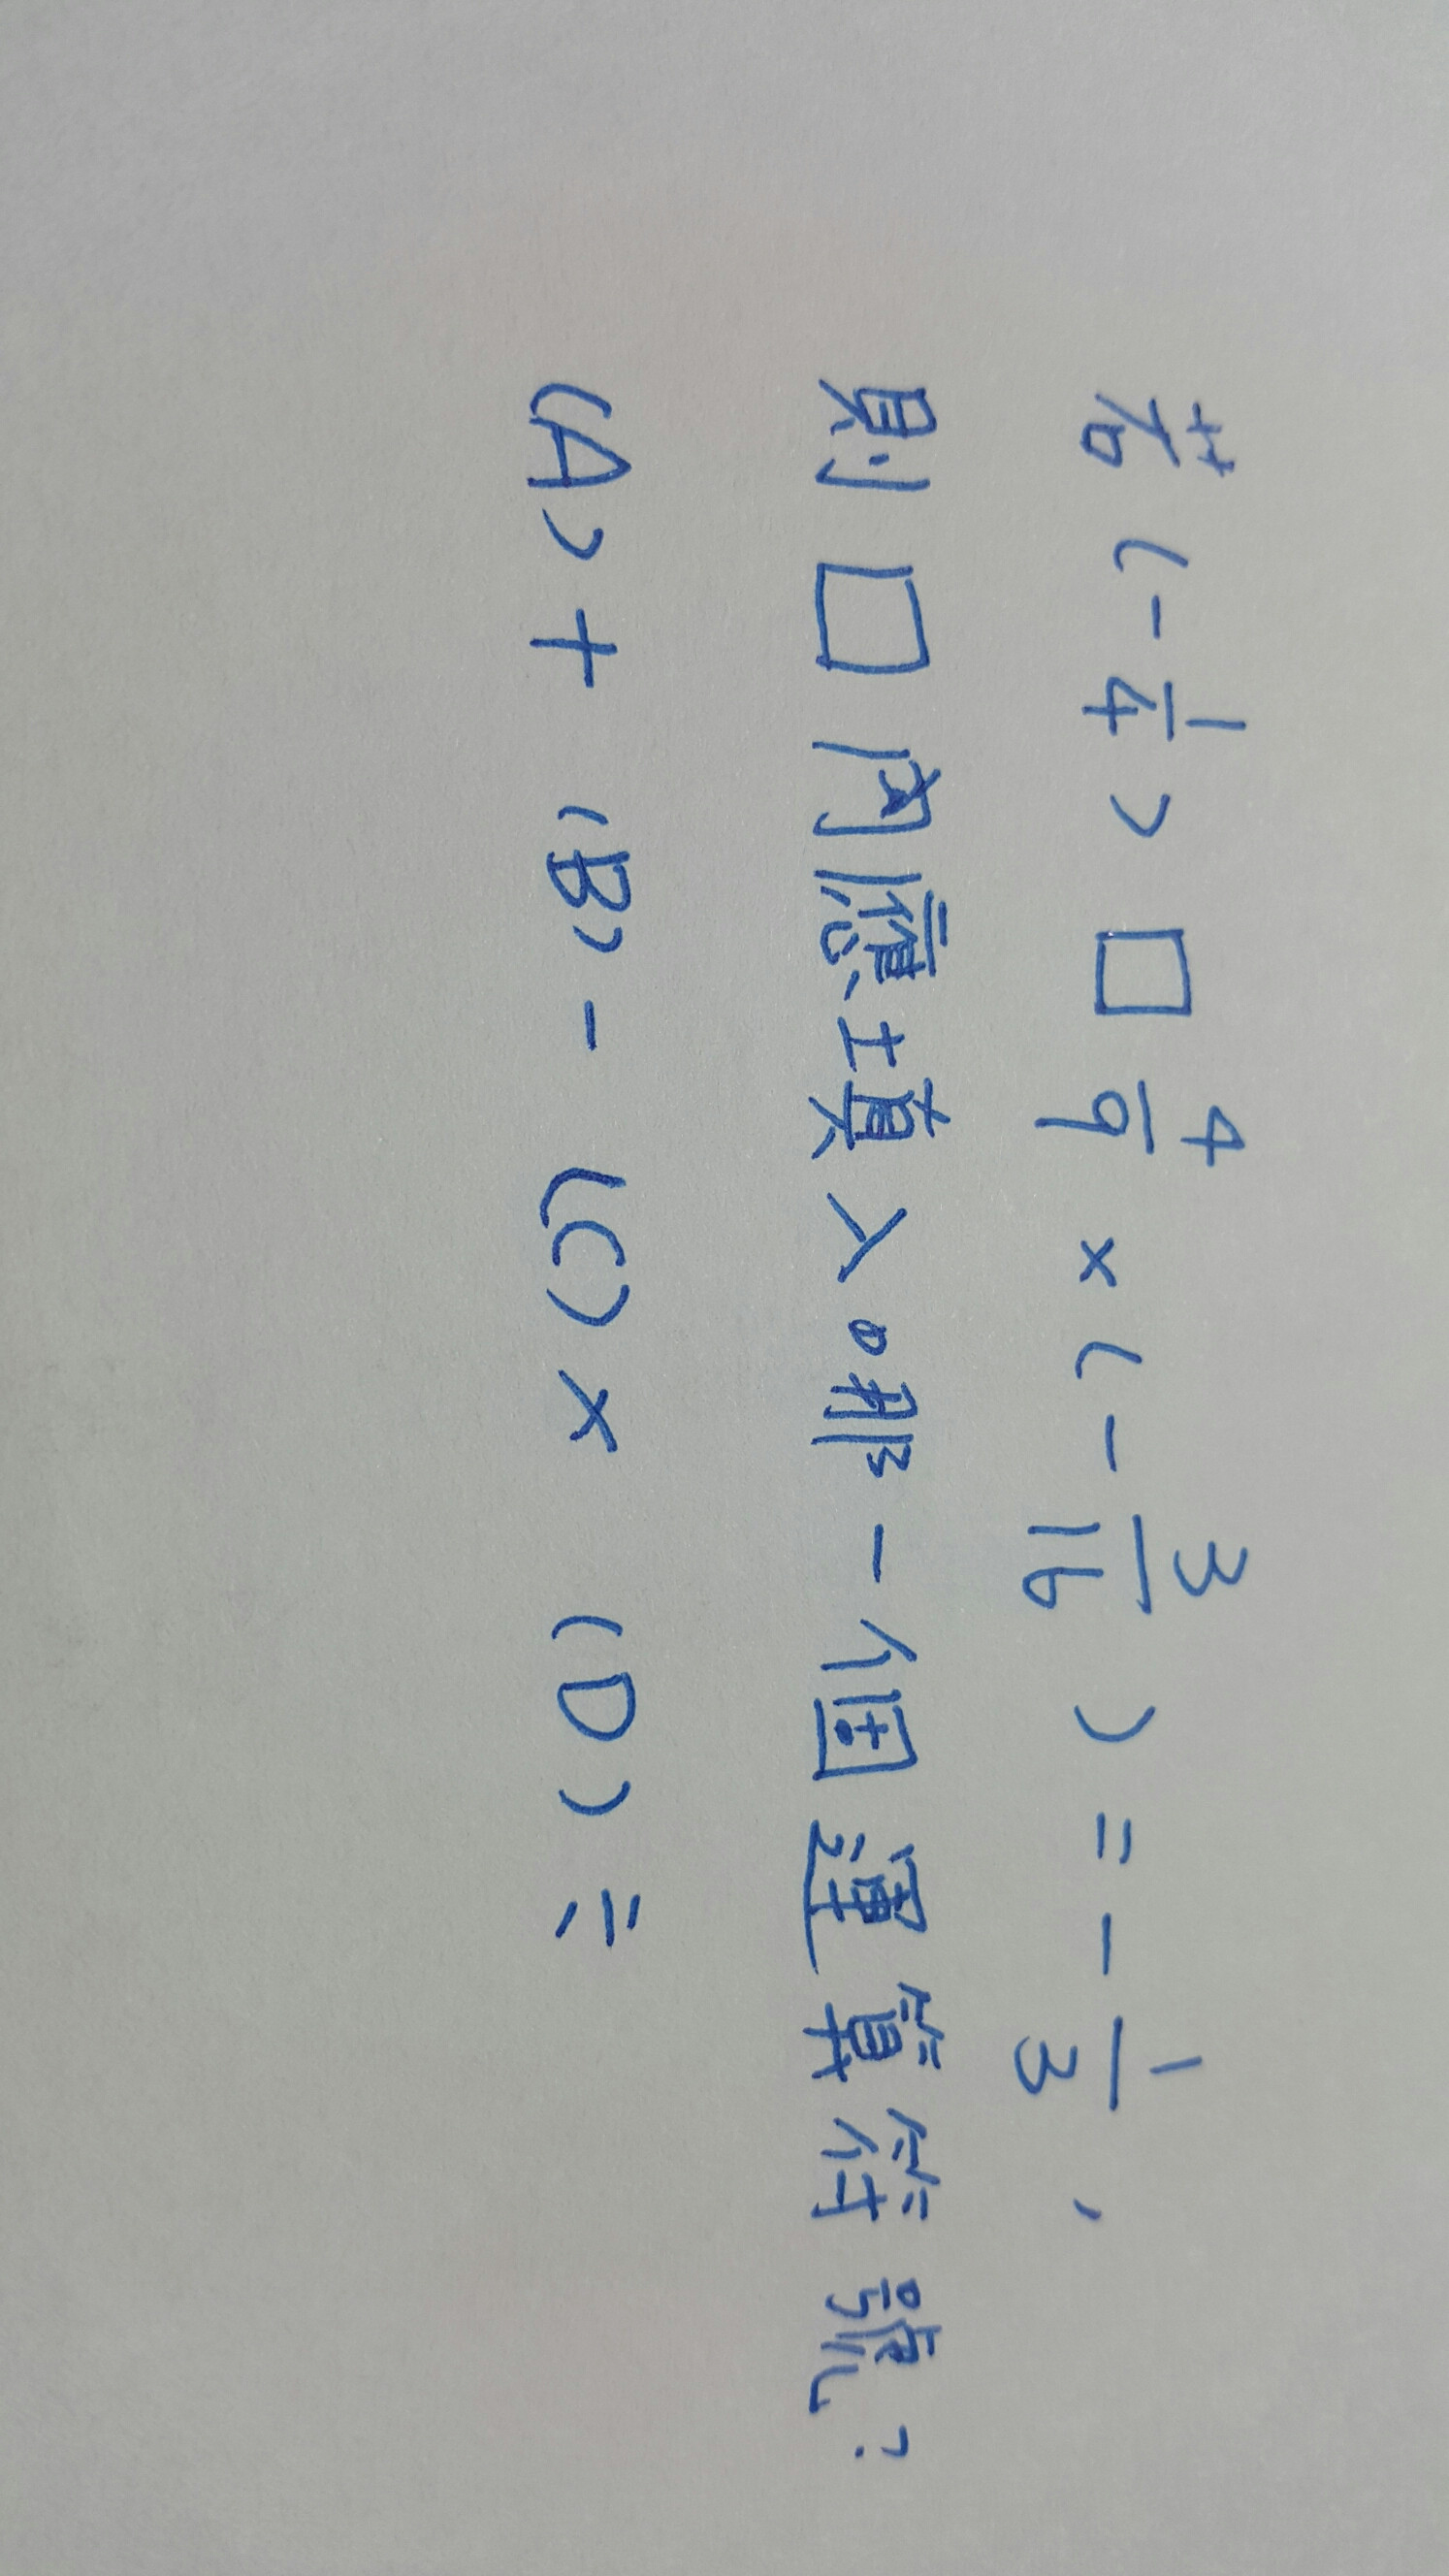 若 (-1/4) □ 4/9 × (-3/16) = -1/3 ,
則 □ 內應填入哪一個運算符號?
(A) + (B) - (C) × (D) ÷